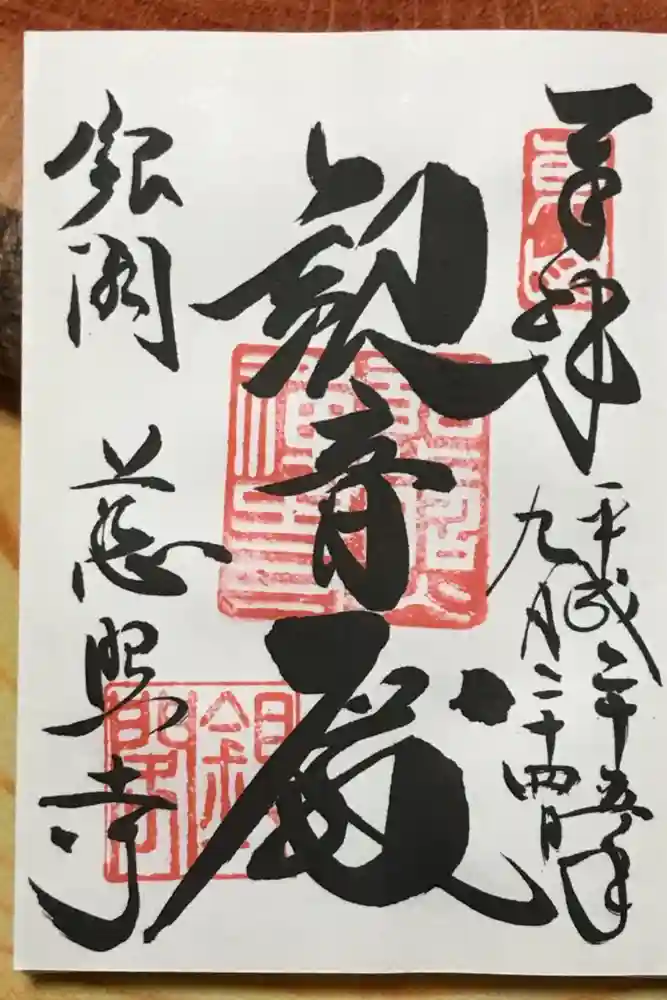 奉拝
東山
平成二十五年
九月二十四日
観音殿
銀閣 慈照寺
銀閣